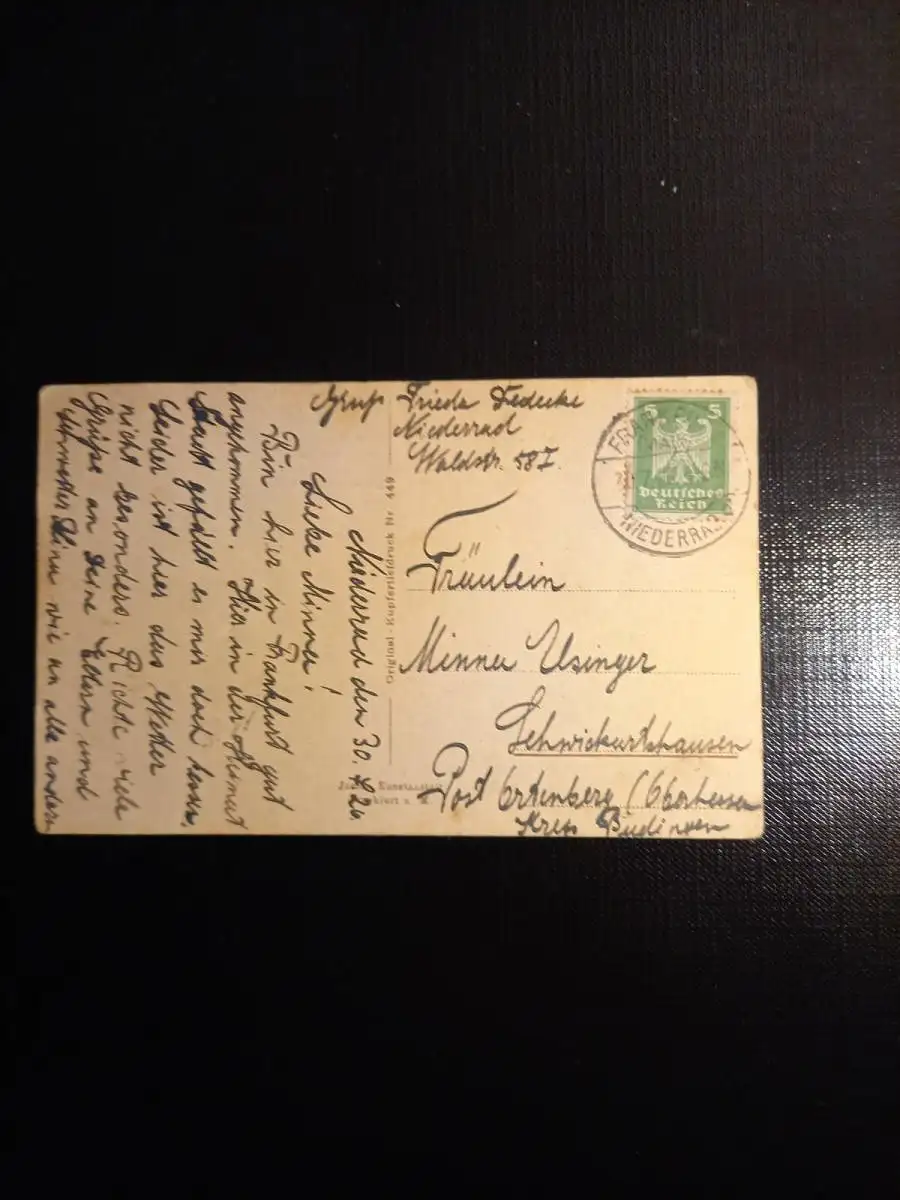 Niederrad den 30.
Liebe Minna!
Bin hier in Frankfurt gut
angekommen. Hier in der Heimat
gefällt es mir doch besser,
Leider ist hier das Wetter
nicht besonders. Richte viele
Grüße an Deine Eltern und
wie an alle andern
Gruß Frieda
Niederrad
Waldstr. 58 I.
Fräulein
Minna Usinger
Schwickartshausen
Post Ortenberg (Oberhessen
Kreis Büdingen
5 5
Deutsches
Reich
NIEDERRAD
Original-Kupfertiefdruck Nr. 449